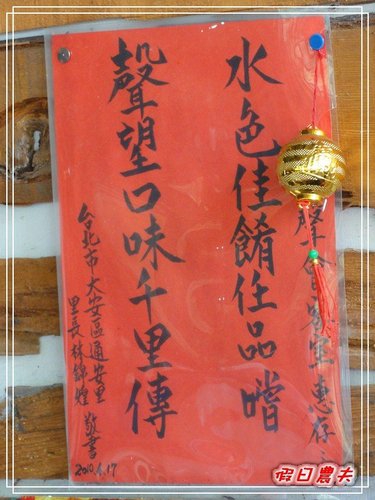 水色佳餚任品嚐
聲望口味千里傳
惠存
台北市大安區通安里
里長林錦煌 敬書
2010.4.17
假日農夫